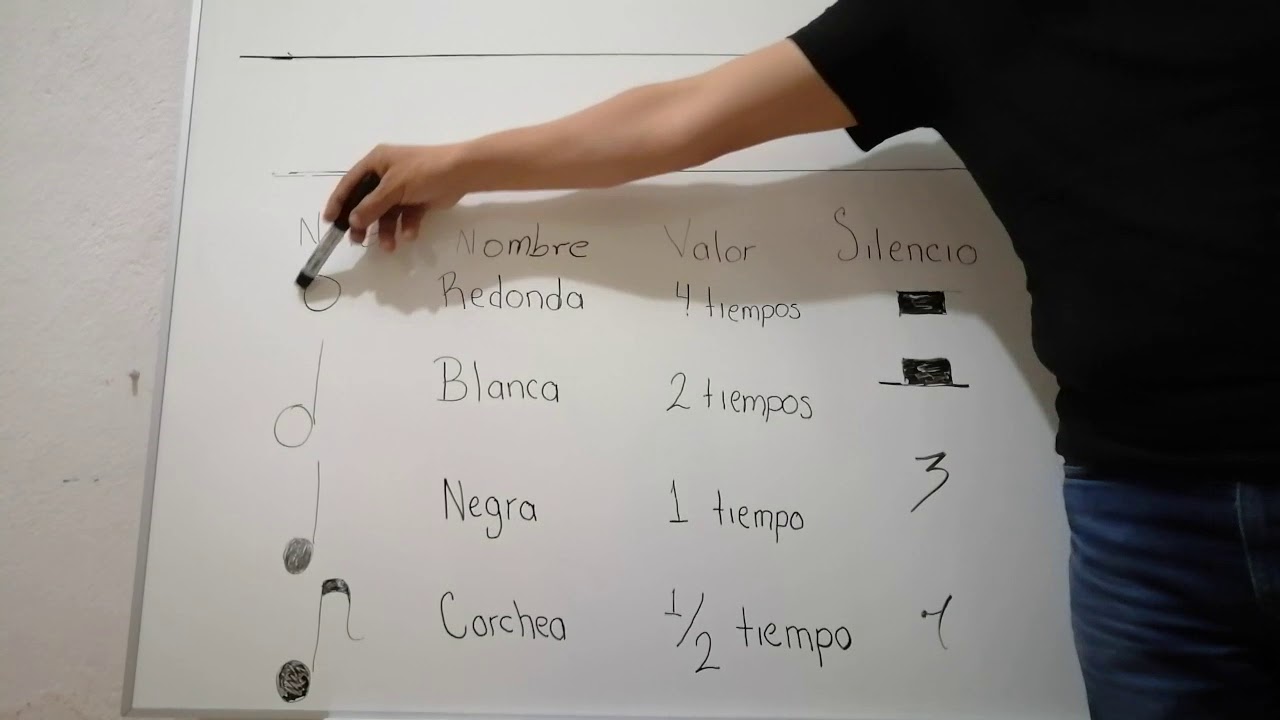 Nombre Valor Silencio
Redonda 4 tiempos
Blanca 2 tiempos
Negra 1 tiempo
Corchea 1/2 tiempo